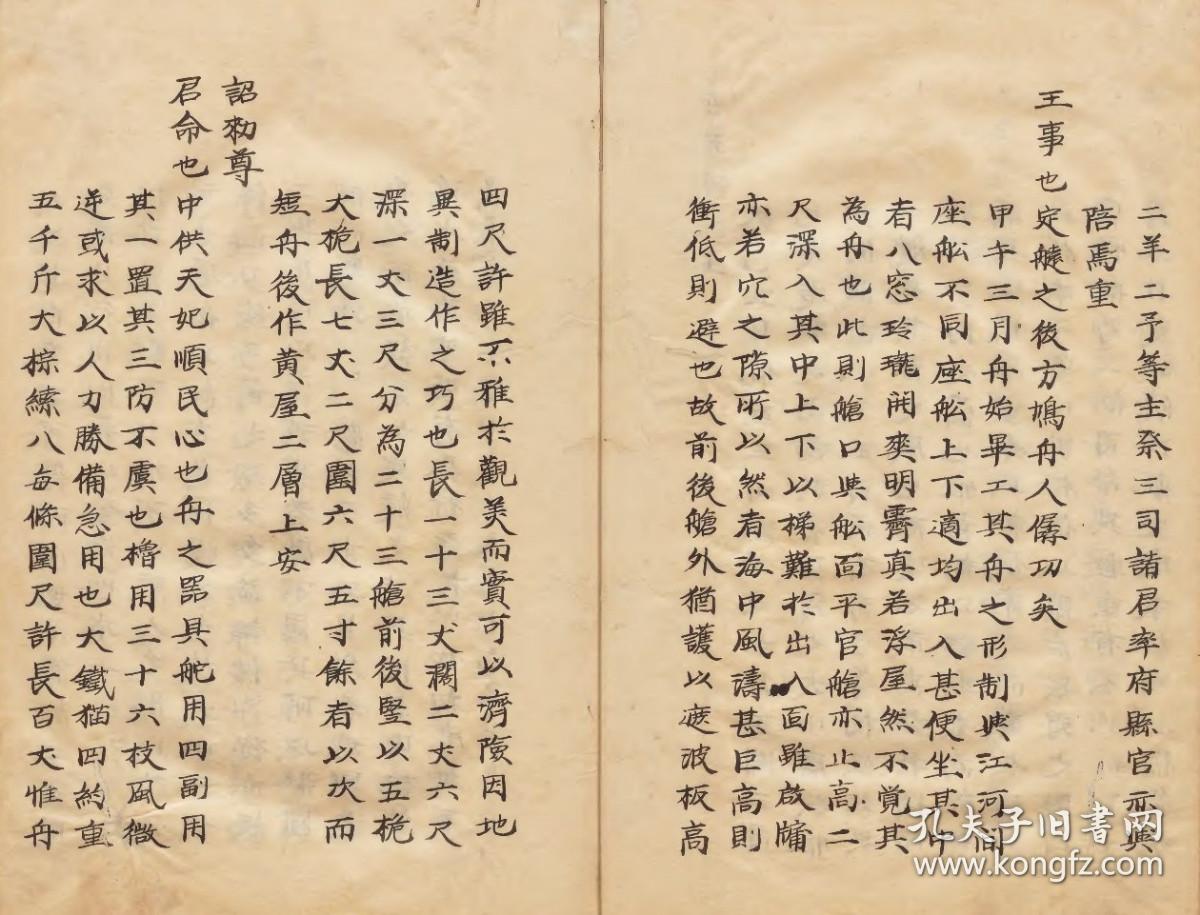 二羊二予等主祭三司諸君率府縣官亦與
陪焉重
王事也定艤之後方鳩舟人僝功矣
甲午三月舟始畢工其舟之形制與江河間
座舡不同座舡上下適均出入甚便坐其中
者八窓玲瓏開爽明霽真若浮屋然不覺其
為舟也此則艙口與舡面平官艙亦止高二
尺深入其中上下以梯難於出入面雖啟牖
亦若穴之隙所以然者海中風濤甚巨高則
衝低則避也故前後艙外猶護以遮波板高
四尺許雖不雅於觀美而實可以濟險因地
異制造作之巧也長一十三丈濶二丈六尺
深一丈三尺分為二十三艙前後竪以五桅
大桅長七丈二尺圍六尺五寸餘者以次而
短舟後作黃屋二層上安
詔勑尊
君命也中供天妃順民心也舟之器具舵用四副用
其一置其三防不虞也櫓用三十六枝風微
逆或求以人力勝備急用也大鐵猫四約重
五千斤大棕繚八每條圍尺許長百丈惟舟
孔夫子旧書网
www.kongfz.com